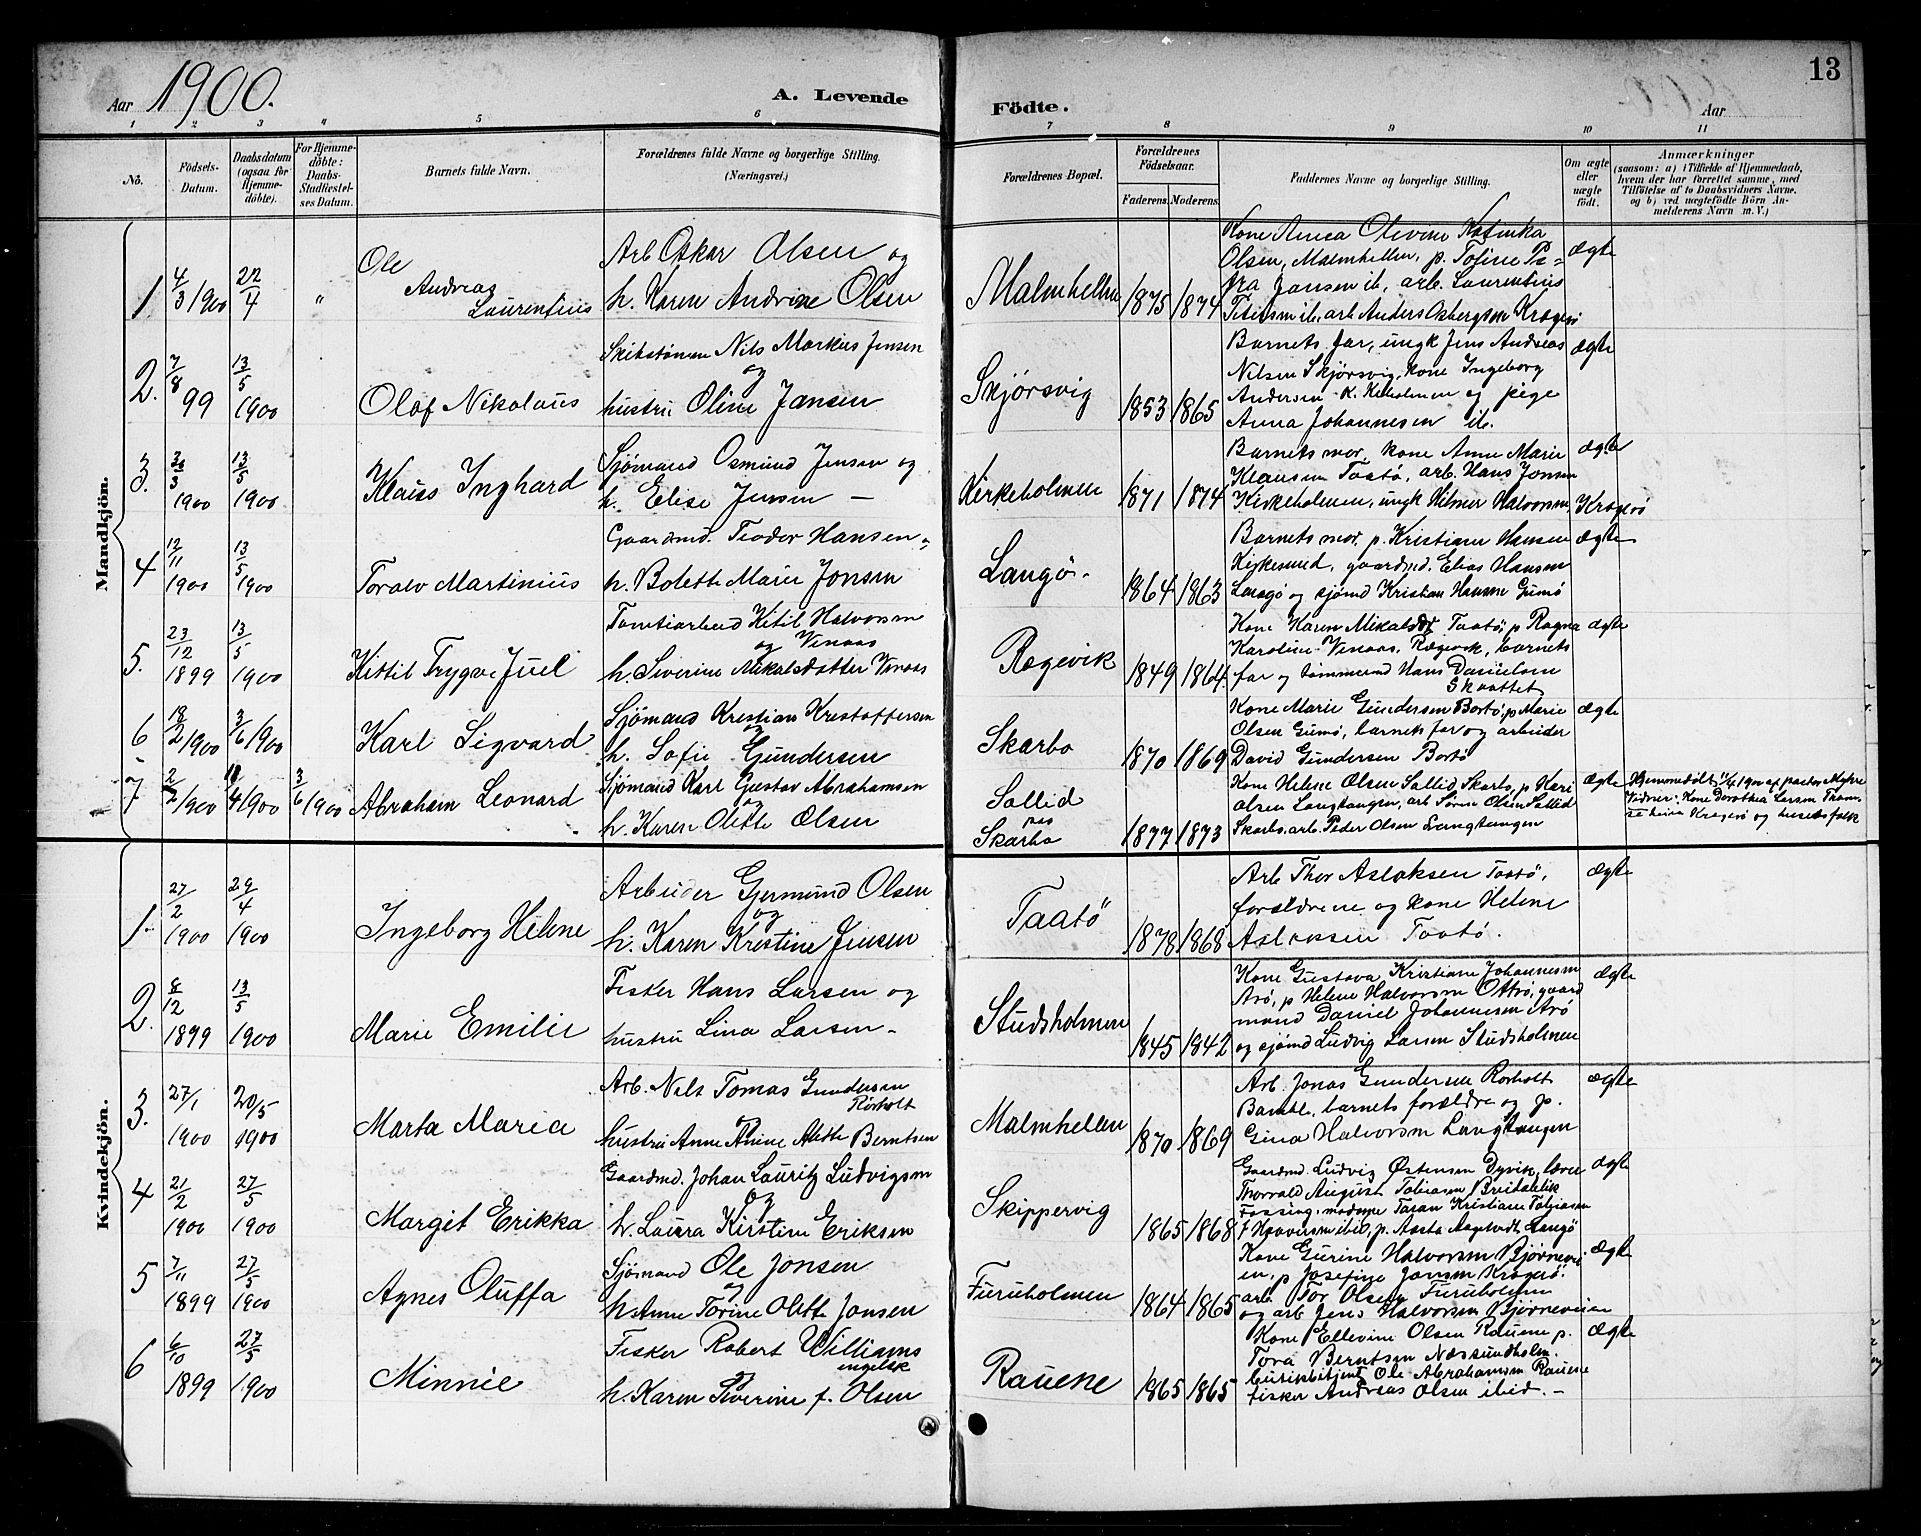 Aar 1900.
A. Levende Födte.
Aar
13
1 2 3 4 5 6 7 8 9 10 11
No.
Födsels-Datum.
Daabsdatum (ogsaa for Hjemmedöbte).
For Hjemmedöbte: Daabs-Stadfæstelses Datum.
Barnets fulde Navn.
Forældrenes fulde Navne og borgerlige Stilling. (Næringsvei.)
Forældrenes Bopæl.
Forældrenes Födselsaar.
Faderens. Moderens.
Faddernes Navne og borgerlige Stilling.
Om ægte eller uægte födt.
Anmærkninger
(saasom: a) i Tilfælde af Hjemmedaab, hvem der har forrettet samme, med Tilföielse af to Daabsvidners Navne. og b) ved uægtefödte Börn Anmelderens Navn m. V.)
Mandkjön.
1 4/3 1900 22/4 "
Ole Andreas Laurentius
Arb Oskar Olsen og
h. Karen Andrine Olsen
Malmhellen 1875 1874
Kone Anna Olevine Katinka
Olsen, Malmhellen, p. Tosine Pe-
tra Jansen ib, arb. Laurentius
Petersen ib, arb Anders Osbergsen Kragerø
ægte
2. 7/8 99 13/5 1900
Olaf Nikolaus
Nils Markus Jensen
og
hustru Oline Jansen
Skjørsvig 1853 1865
Barnets far, ungk Jens Andreas
Nilsen Skjørsvig, kone Ingeborg
Andersen K. Kirkeholmen og pige
Anna Johannesen ib.
ægte
3. 1900 13/5 1900
Klaus Inghard
Sjømand Osmund Jensen og
h. Elise Jensen —
Kirkeholmen 1871 1874
Barnets mor, kone Anne Marie
Klausen Taatø, arb. Hans Jonsen
Kirkeholmen, ungk Helmer Halvorsen Kragerø
ægte
4 12/11 1900 13/5 1900
Toralv Martinius
Gaardmd. Teodor Hansen
h. Bolette Marie Jonsen
Langø. 1864 1863
Barnets mor, p. Kristiane Hansen
Kirkesund, gaardmd. Elias Hansen
Langø og sjømd Kristian Hansen Gumø
ægte
5. 23/12 1899 13/5 1900
Kittil Trygve Juel
Tomtearbeid Kitil Halvorsen
og Vinaas
h. Siverine Mikalsdatter Vinaas
Rægevik 1849 1864.
Kone Karen Mikalsdt Taatø, p Ragna
Karoline Vinaas, Rægevik, barnets
far og tømmermd Hans Danielsen
Skaattet
ægte
6 18/2 1900 3/6 1900
Karl Sigvard
Sjømand Kristian Kristoffersen
og
h. Sofie Gundersen
Skarbo 1870 1869
Kone Marie Gundersen Bortø, p Marie
Olsen Gumø, barnets far og arbeider
David Gundersen Bortø
ægte
7. 2/2 1900 4 1900 3/6 1900
Abraham Leonard
Sjømand Karl Gustav Abrahamsen
og
h. Karen Olette Olsen
Sollid
paa
Skarbo 1877 1873
Kone Helene Olsen Sollid Skarbo, p Kari
Olsen Langtangen, arb Søren Olsen Sollid
Skarbo, arb. Peder Olsen Langtangen
ægte
Hjemmedøbt 1/4 1900 af pastor Myhre
Vidner: Kone Dorothea Larsen
Kragerø og husets folk
Kvindekjön.
1. 27/2 1900 29/4 1900
Ingeborg Helene
Arbeider Gjermund Olsen
og
h. Karen Kristine Jensen
Taatö 1878 1868
Arb Thor Aslaksen Taatø,
forældrene og kone Helene
Aslaksen Taatø.
ægte
2. 8/12 1899 13/5 1900
Marie Emilie
Fisker Hans Larsen og
hustru Lina Larsen -
Studsholmen 1845 1842
Kone Gustava Kristiane Johannesen
Arø, p Helene Halvorsen Ottrø, gaard
mand Daniel Johannesen Arø
og sjømd Ludvig Larsen Studsholmen
ægte
3. 27/1 1900 20/5 1900
Marta Maria
Arb. Nils Tomas Gundersen
Rørholt
hustru Anne Anine Alette Berntsen
Malmhellen 1870 1869
Arb. Jonas Gundersen Rørholt
Bamble, barnets forældre og p.
Gina Halvorsen Langtangen
ægte
4 21/2 1900 27/5 1900
Margit Erikka
Gaardmd. Johan Lauritz Ludvigsen
og
h. Laura Kirstine Eriksen
Skippervig 1865 1868
Gaardmd. Ludvig Østensen Dyvik, lærer
Thorvald August Tobiasen Breidablik
Fossing, madame Taran Kristiane Tobiasen
f Haavorsen ibid, p. Aasta Aagstvedt Langø
ægte
5 7/11 1899 27/5 1900
Agnes Oluffa
Sjømand Ole Jonsen
og
h. Anne Torine Olette Jonsen
Furuholmen 1864 1865
Kone Gurine Halvorsen Bjørnevei
en, p Josefine Jansen Kragerø.
arb Tor Olsen Furuholmen
og arb Jens Halvorsen Bjørneveien
ægte
6 6/10 1899 27/5 1900
Minnie
Fisker Robert Williams
engelsk
og
h. Karen Siverine f. Olsen
Rauene 1865 1865
Kone Ellevine Olsen Rauene p.
Tora Berntsen Næssundholm.
Ole Abrahamsen Rauene
fisker Andreas Olsen ibid. —
ægte